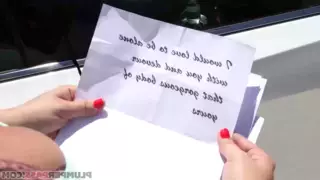 I would love to be alone
with you and devour
that gorgeous body of
yours
PLUMPERPASS.COM